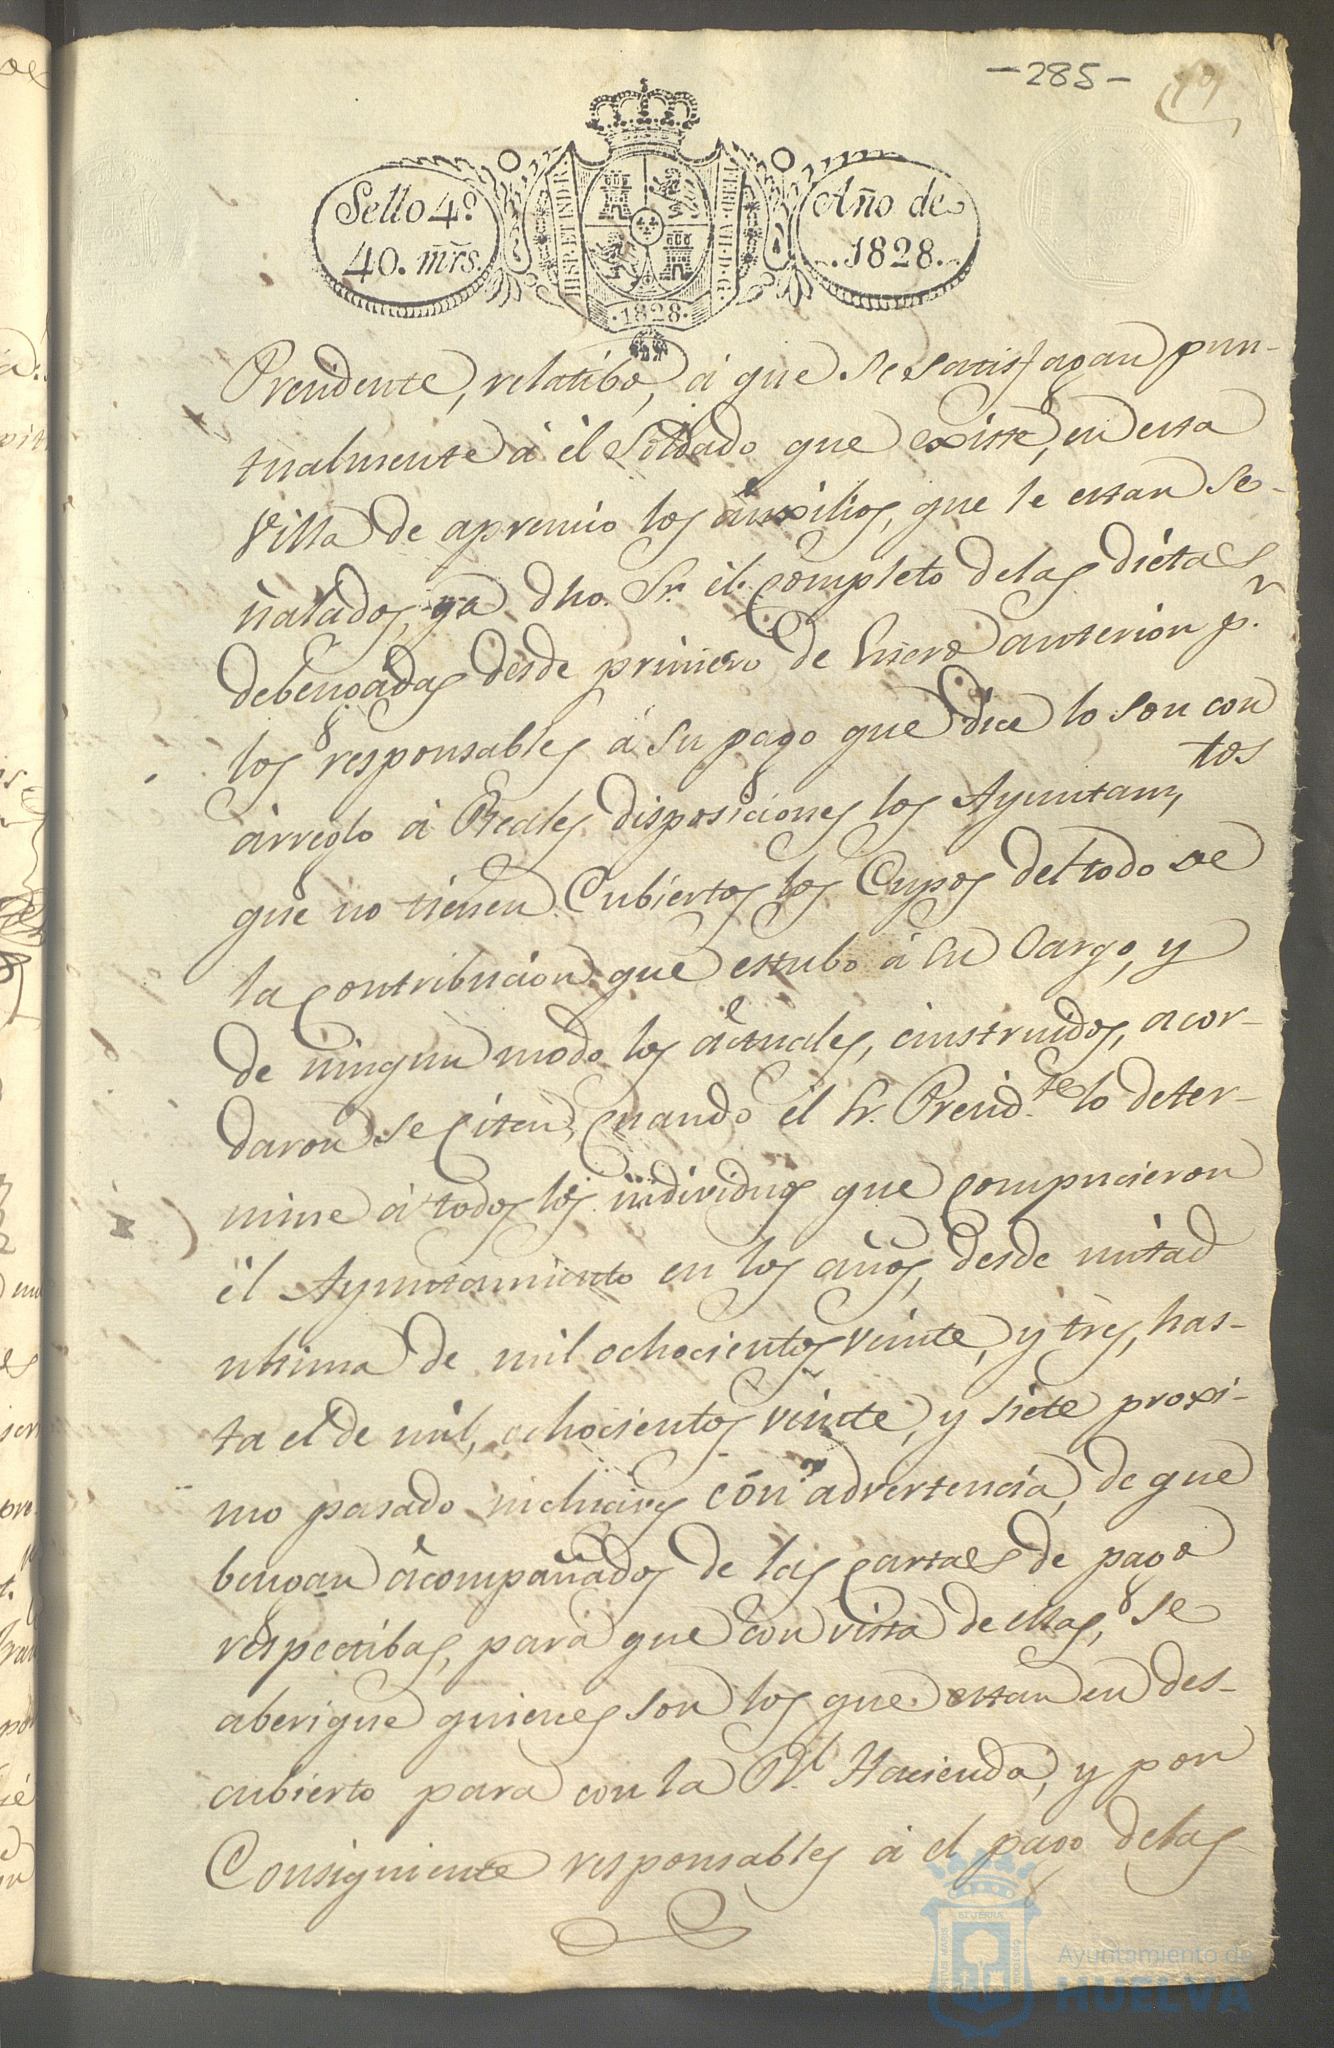 -285-
Sello 4º
40. mrs.
Año de
1828.
HISP. ET IND. R.
FERD. VII. D. G.
·1828·
Presidente, relatibo, á que se satisfagan pun-
tualmente á él Soldado que existe, en esta
Villa de apremio los auxilios, que le estan se-
ñalados, ya dho. Sr. él completo delas dietas
debengadas desde primero de Enero anterior pr.
los responsables á su pago que dice lo son con
arreglo á Reales disposiciones los Ayuntam,tos
que no tienen Cubiertos los Cupos del todo de
la contribucion que estubo á su Cargo, y
de ningun modo los áctuales, einstruidos, acor-
daron se Citen, Cuando él Sr. Presid.te lo deter-
mine á todos los individuos que compucieron
él Ayuntamiento en los años, desde mitad
ultima de mil ochocientos veinte, y tres, has-
ta el de mil, ochocientos veinte, y siete proxi-
mo pasado inclucives con advertencia, de que
bengan ácompañados de las cartas de pago
respectibas, para que con vista de ellas, se
aberigue quienes son los que estan en des-
cubierto para con la Rl. Hacienda, y por
Consiguiente responsables á el pago delas
Ayuntamiento de
HUELVA